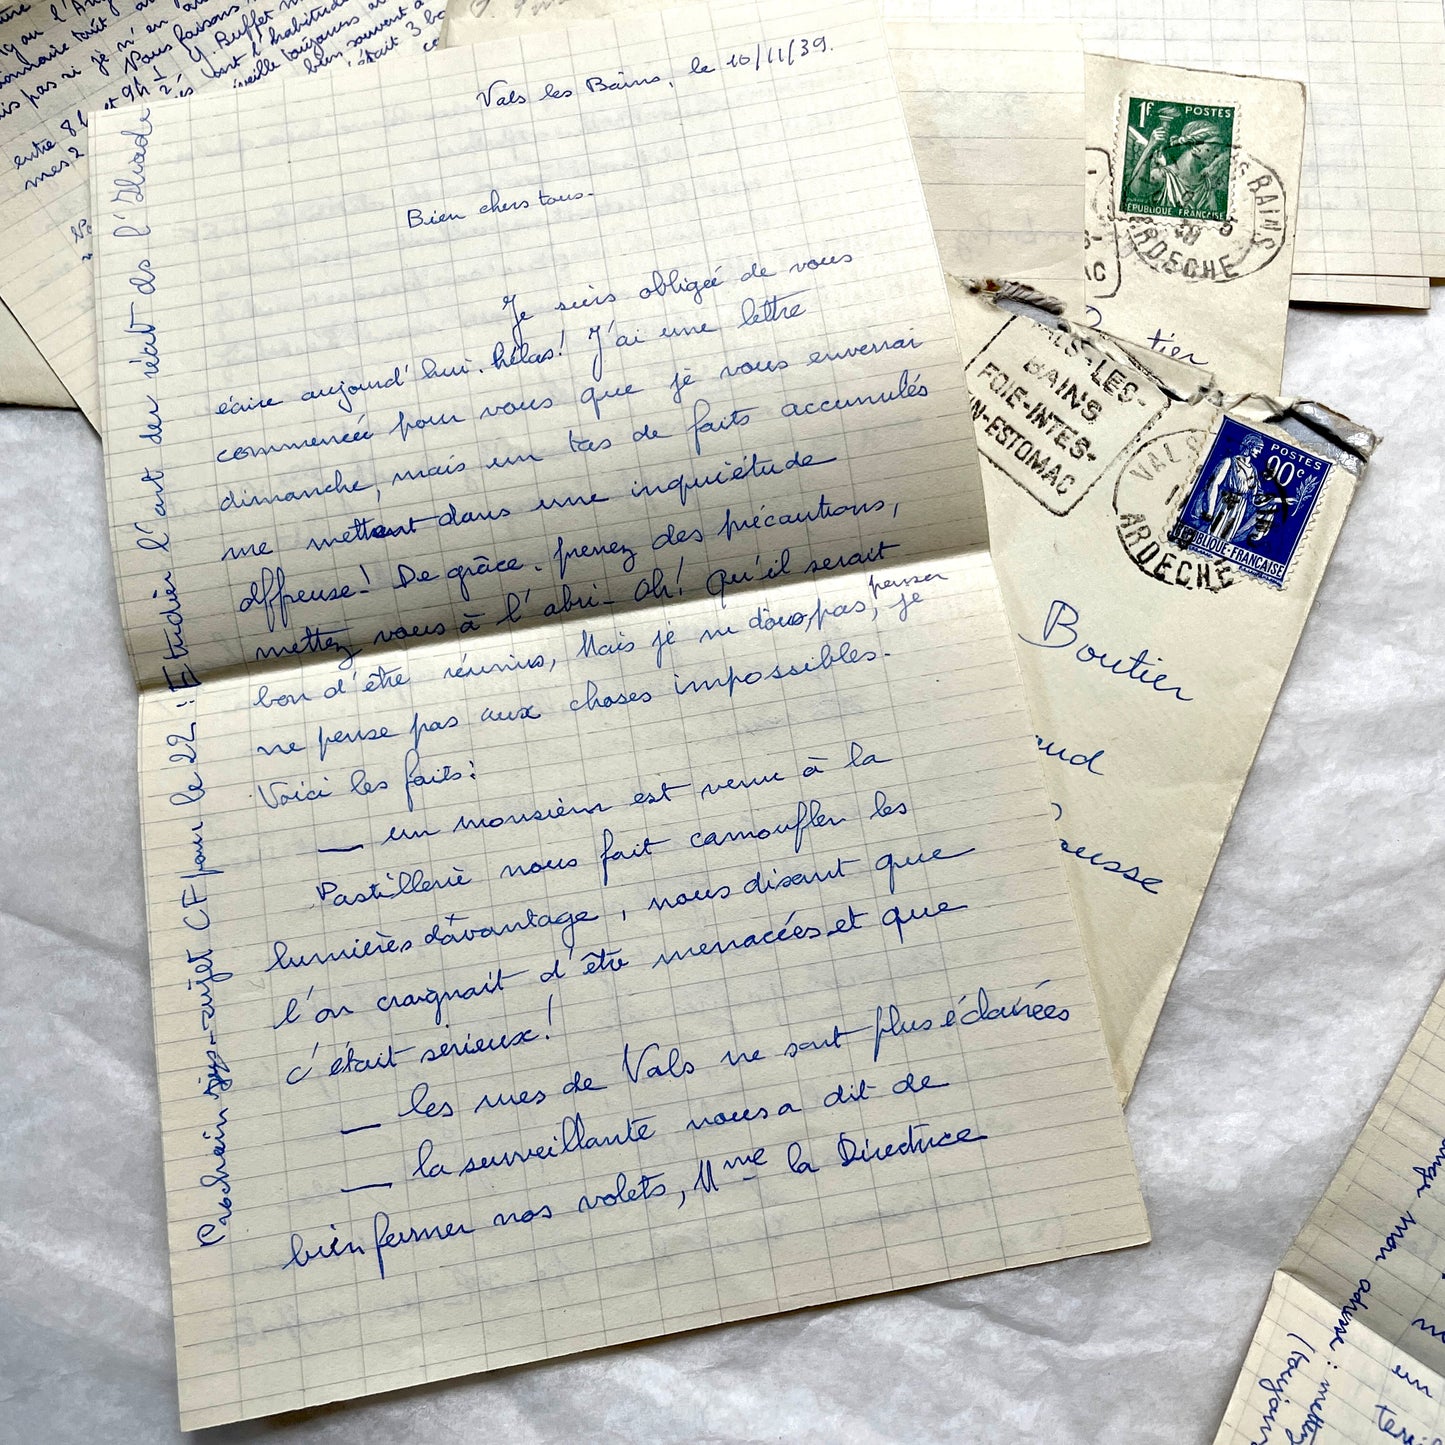 Vals les Bains, le 10/11/39.
Bien chers tous.
Je suis obligée de vous
écrire aujourd'hui. hélas! J'ai une lettre
commencée pour vous que je vous enverrai
dimanche, mais un tas de faits accumulés
me mettent dans une inquiétude
affreuse! De grâce. prenez des précautions,
mettez vous à l'abri - Oh! Qu'il serait
bon d'être réunis, Mais je ne dois pas, penser je
ne pense pas aux choses impossibles.
Voici les faits:
— un monsieur est venu à la
Pastillerie nous fait camoufler les
lumières davantage, nous disant que
l'on craignait d'être menacées et que
c'était sérieux!
— les rues de Vals ne sont plus éclairées
— la surveillante nous a dit de
bien fermer nos volets, Mme la Directrice
Prochain sujet CF pour le 22: Etudier l'art du récit ds l'Iliade
entre 8h et 9h 1/2
mes 2
Nous faisons
Y. Buffet
ont l'habitude
bien souvent
était 3
1F POSTES
RÉPUBLIQUE FRANÇAISE
BAINS
ARDECHE
tier
VALS-LES-
BAINS
FOIE-INTES-
IN-ESTOMAC
VALS
ARDECHE
POSTES
90c
REPUBLIQUE-FRANÇAISE
Boutier
aud
ousse
mon adresse: mettez
(toujours
en